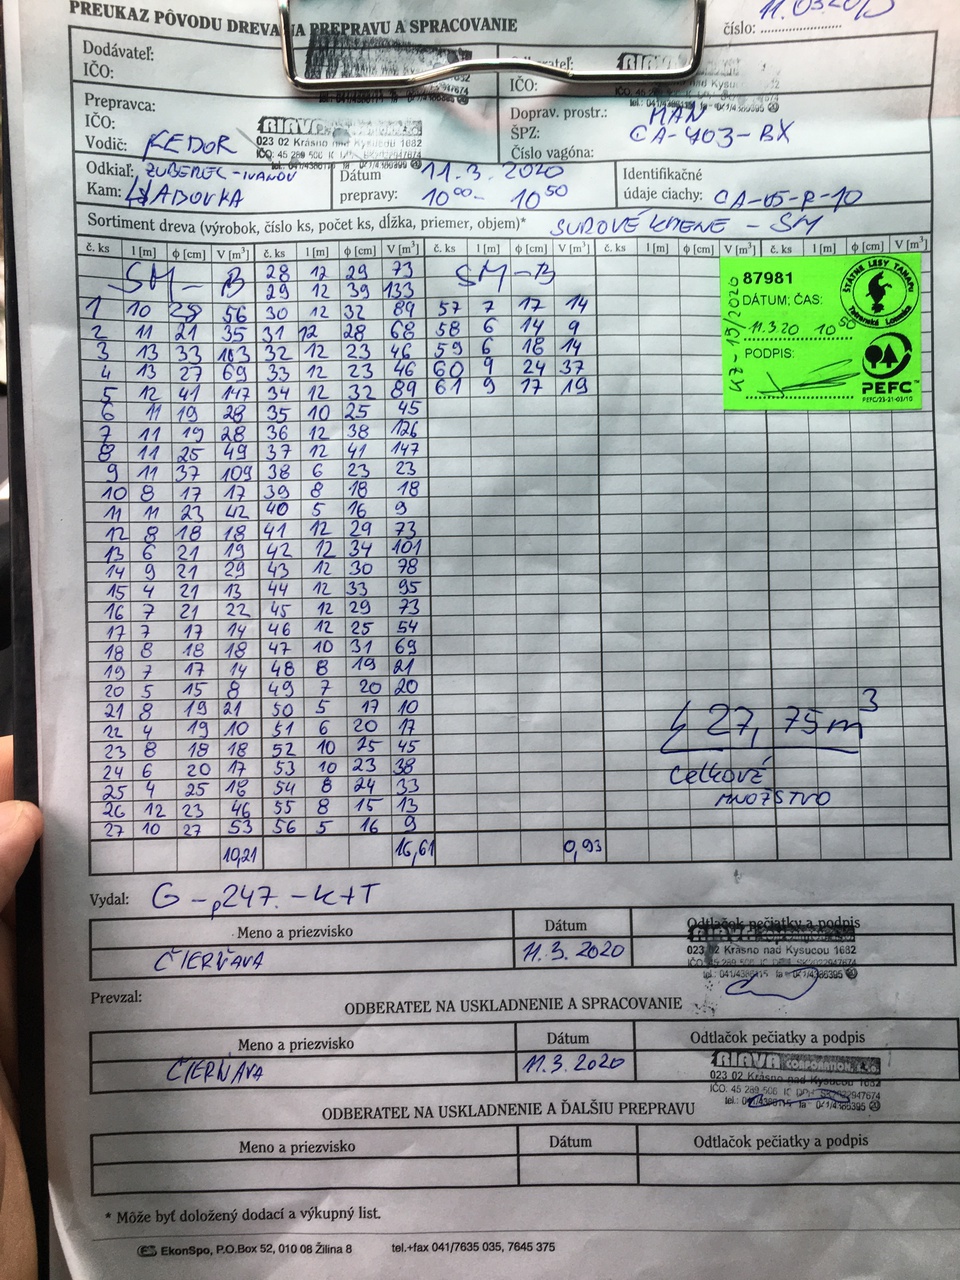 PREUKAZ PÔVODU DREVA NA PREPRAVU A SPRACOVANIE
číslo:
Dodávateľ:
IČO:
RIAVA
IČO:
Prepravca:
IČO:
Vodič: KEDOR
RIAVA
023 02 Krásno nad Kysucou 1682
Doprav. prostr.: MAN
ŠPZ: CA-403-BX
Číslo vagóna:
Odkiaľ: ZUBEREC-IVANOV
Kam: HLADOVKA
Dátum prepravy: 11.3.2020
10⁰⁰ - 10⁵⁰
Identifikačné
údaje ciachy: CA-65-R-10
Sortiment dreva (výrobok, číslo ks, počet ks, dĺžka, priemer, objem)* SUROVÉ KMENE - SM
č. ks l [m] φ [cm] V [m³] č. ks l [m] φ [cm] V [m³] č. ks l [m] φ [cm] V [m³] č. ks l [m] φ [cm] V [m³] č. ks l [m] φ [cm] V [m³]
SM - B 28 12 29 73 SM - B
29 12 39 133
1 10 28 56 30 12 32 89 57 7 17 14
2 11 21 35 31 12 28 68 58 6 14 9
3 13 33 103 32 12 23 46 59 6 18 14
4 13 27 69 33 12 23 46 60 9 24 37
5 12 41 147 34 12 32 89 61 9 17 19
6 11 19 28 35 10 25 45
7 11 19 28 36 12 38 126
8 11 25 49 37 12 41 147
9 11 37 109 38 6 23 23
10 8 17 17 39 8 18 18
11 11 23 42 40 5 16 9
12 8 18 18 41 12 29 73
13 6 21 19 42 12 34 101
14 9 21 29 43 12 30 78
15 4 21 13 44 12 33 95
16 7 21 22 45 12 29 73
17 7 17 14 46 12 25 54
18 8 18 18 47 10 31 69
19 7 17 14 48 8 19 21
20 5 15 8 49 7 20 20
21 8 19 21 50 5 17 10
22 4 19 10 51 6 20 17
23 8 18 18 52 10 25 45
24 6 20 17 53 10 23 38
25 4 25 18 54 8 24 33
26 12 23 46 55 8 15 13
27 10 27 53 56 5 16 9
10,21 16,61 0,93
87981
DÁTUM; ČAS:
11.3.20 10⁵⁰
PODPIS:
ŠTÁTNE LESY TANAPU
Tatranská Lomnica
PEFC
PEFC/23-21-03/10
27,75 m³
celkové
množstvo
Vydal: G-p247.-K+T
Meno a priezvisko Dátum Odtlačok pečiatky a podpis
ČIERŇAVA 11.3.2020
RIAVA
023 02 Krásno nad Kysucou 1682
Prevzal:
ODBERATEĽ NA USKLADNENIE A SPRACOVANIE
Meno a priezvisko Dátum Odtlačok pečiatky a podpis
ČIERŇAVA 11.3.2020
RIAVA CORPORATION, s.r.o.
023 02 Krásno nad Kysucou 1682
ODBERATEĽ NA USKLADNENIE A ĎALŠIU PREPRAVU
Meno a priezvisko Dátum Odtlačok pečiatky a podpis
* Môže byť doložený dodací a výkupný list.
EkonSpo, P.O.Box 52, 010 08 Žilina 8 tel.+fax 041/7635 035, 7645 375